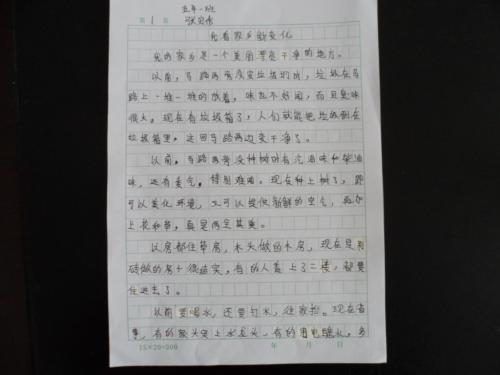 五年一班
第 1 页
看看家乡新变化
我的家乡是一个美丽干净的地方。
以前,马路两旁堆积垃圾的,垃圾在马
路上一堆一堆的放着,味也不好闻,而且臭味
很大。现在有垃圾箱了,人们就能把垃圾倒在
垃圾箱里,这回马路两边变干净了。
以前,马路两旁没种树时有汽油味和柴油
味,还有废气,特别难闻。现在种上树了,即
可以美化环境,又可以提供新鲜的空气,再加
上花和草,真是两全其美。
以前都住草房,木头做的木房,现在是用
砖做的房子很结实,有的人盖上了二楼,都要
住进去了。
以前要喝水,还要打水,往家拎。现在省
事,有的家安上水龙头,有的用电抽水,多
15×20=300 年 月 日